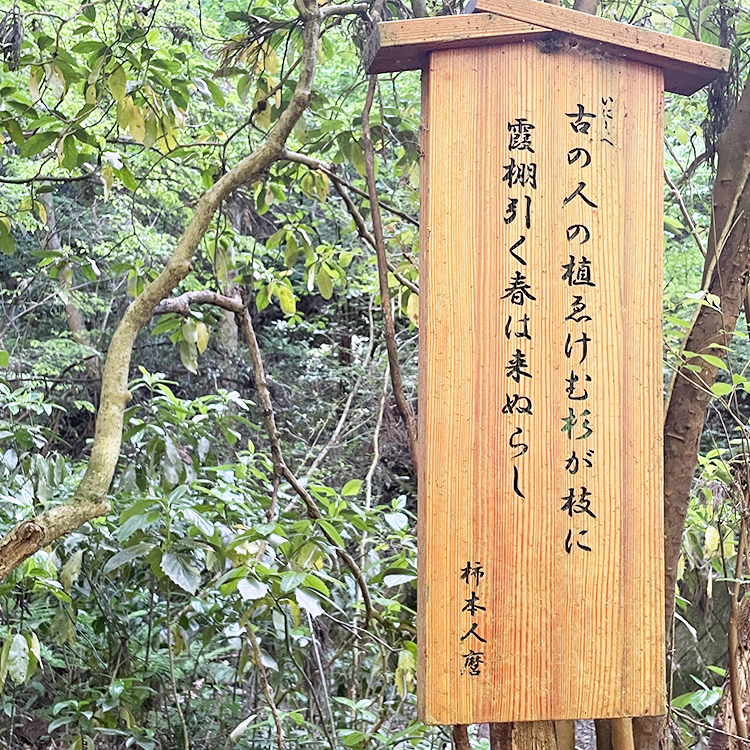 いにしへ
古の人の植ゑけむ杉が枝に
霞棚引く春は来ぬらし
柿本人麿